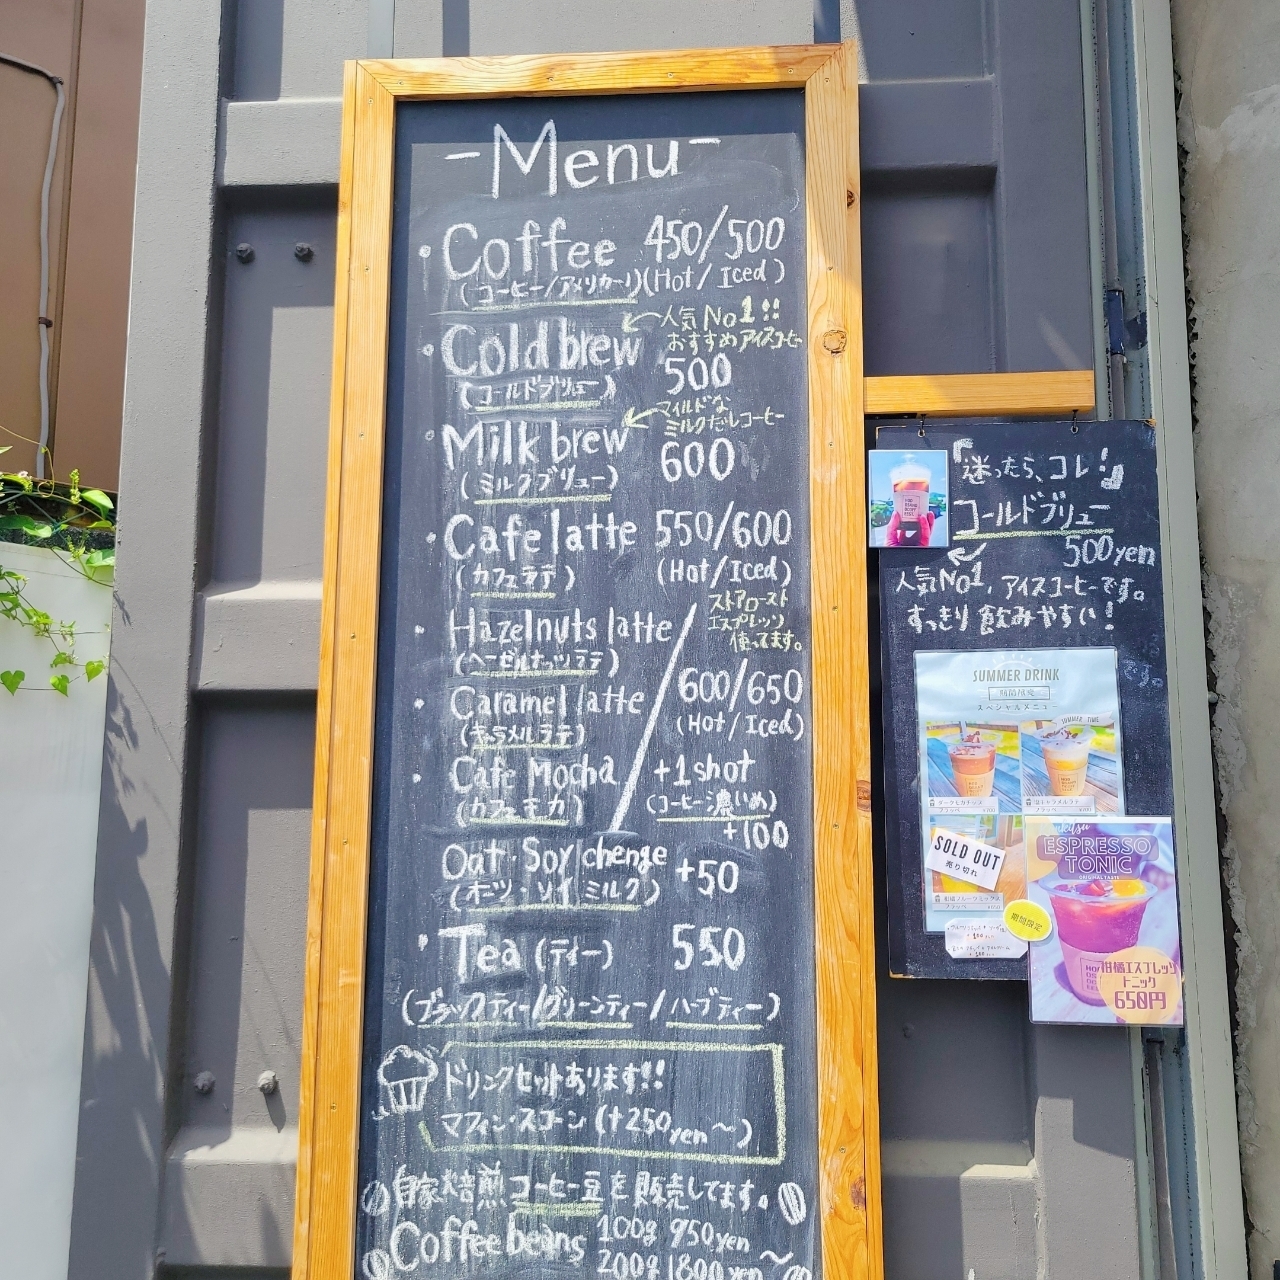 -Menu-
・Coffee 450/500
(コーヒー/アメリカーノ)(Hot/Iced)
・Cold brew
人気No1!!
おすすめアイスコーヒー
(コールドブリュー)
500
・Milk brew
マイルドな
ミルクだしコーヒー
(ミルクブリュー)
600
・Cafe latte 550/600
(カフェラテ) (Hot/Iced)
ストアロースト
エスプレッソ
使ってます。
・Hazelnuts latte
(ヘーゼルナッツラテ)
・Caramel latte
(キャラメルラテ)
・Cafe Mocha
(カフェモカ)
600/650
(Hot/Iced)
+1shot
(コーヒー濃いめ)
+100
Oat・Soy chenge +50
(オーツ・ソイミルク)
・Tea (ティー) 550
(ブラックティー/グリーンティー/ハーブティー)
ドリンクセットあります!!
マフィン・スコーン (+250yen〜)
自家焙煎コーヒー豆を販売してます。
Coffee beans 100g 950yen〜
200g 1800yen
「迷ったら、コレ!」
コールドブリュー
500yen
人気No1、アイスコーヒーです。
すっきり飲みやすい!
です。
SUMMER DRINK
期間限定
スペシャルメニュー
SUMMER TIME
ダークモカチップ
フラッペ ¥700
塩キャラメルラテ
フラッペ ¥700
SOLD OUT
売り切れ
柑橘フルーツミックス
フラッペ
ESPRESSO
TONIC
ORIGINAL TASTE
期間限定
柑橘エスプレッソ
トニック
650円